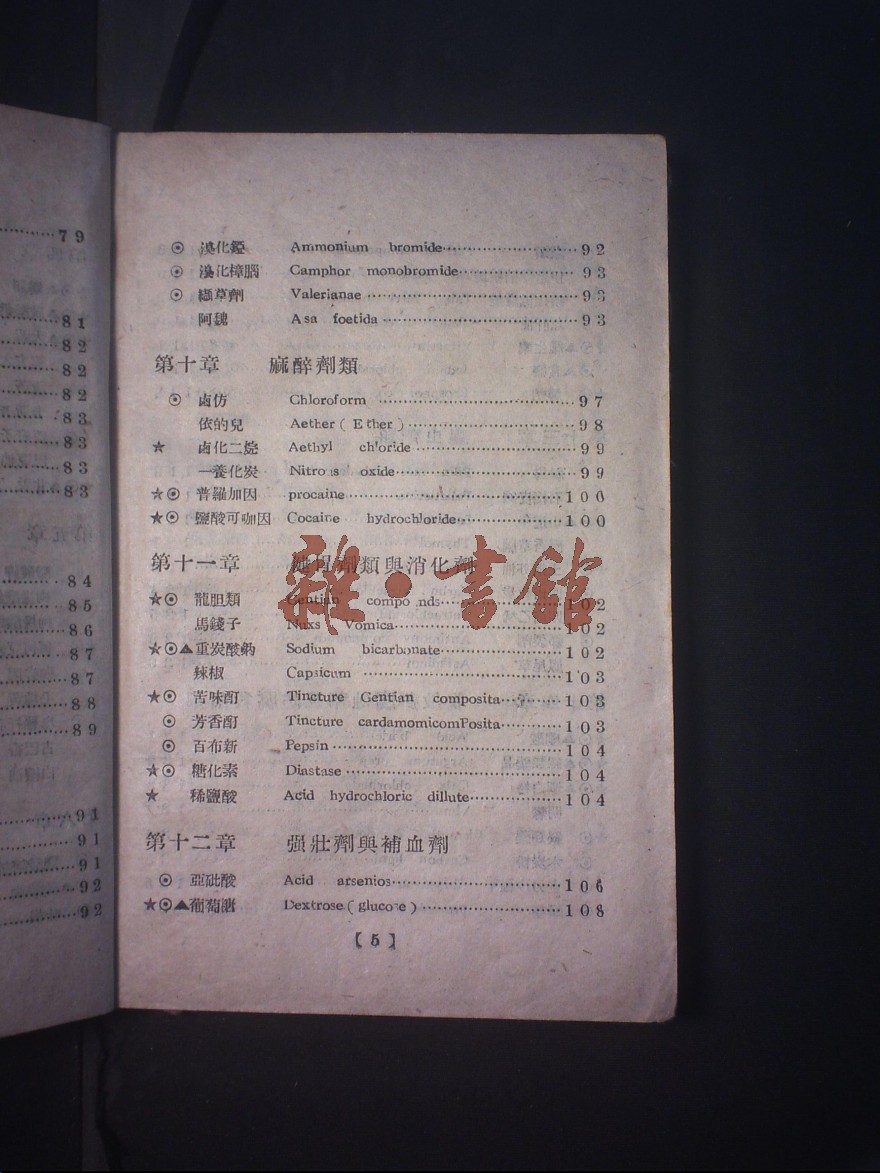 79
81
82
82
82
83
83
83
83
84
85
86
87
87
88
89
91
91
91
92
92
⊙ 溴化錏 Ammonium bromide 92
⊙ 溴化樟腦 Camphor monobromide 93
⊙ 纈草劑 Valerianae 93
阿魏 Asa foetida 93
第十章 麻醉劑類
⊙ 鹵仿 Chloroform 97
依的兒 Aether (Ether) 98
★ 鹵化二烷 Aethyl chloride 99
一養化炭 Nitrous oxide 99
★⊙ 普羅加因 procaine 100
★⊙ 鹽酸可咖因 Cocaine hydrochloride 100
第十一章 健胃劑類與消化劑
★⊙ 龍胆類 Gentian compounds 102
馬錢子 Nuxs Vomica 102
★⊙▲重炭酸鈉 Sodium bicarbonate 102
辣椒 Capsicum 103
★⊙ 苦味酊 Tincture Gentian composita 103
⊙ 芳香酊 Tincture cardamomicomPosita 103
⊙ 百布新 Pepsin 104
★⊙ 糖化素 Diastase 104
★ 稀鹽酸 Acid hydrochloric dillute 104
第十二章 强壯劑與補血劑
⊙ 亞砒酸 Acid arsenios 106
★⊙▲葡萄糖 Dextrose (glucose) 108
【5】
雜·書館